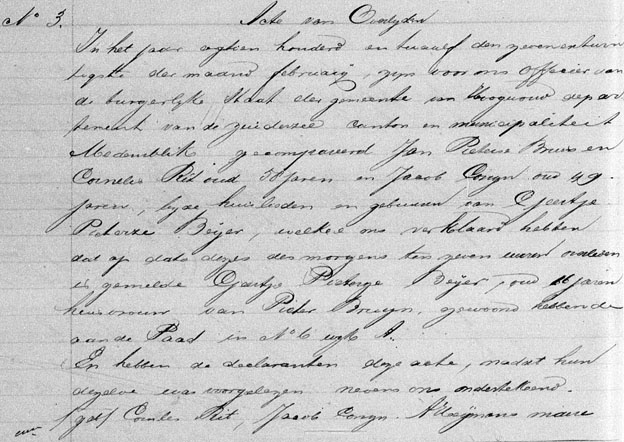 No 3. Acte van Overlyden
In het jaar agtien honderd en twaalf den zevenentwin
tigste der maand februarij, zijn voor ons officier van
de burgerlijke Staat der gemeente van Hoogwoud depar
tement van de zuiderzee canton en municipaliteit
Medemblik gecompareerd Jan Pieterse en
Cornelis Rit oud 58 Jaren en Jacob Congn oud 49
jaren, beyde huislieden en gebueren van Geertje
Pieterze Beijer, welke ons verklaard hebben
dat op dato dezes des morgens ten zeven uuren overleden
is gemelde Geertje Pieterze Beijer, oud jaren
huisvrouw van Pieter Bruyn, gewoond hebbende
aan de Paad in No 6 wyk A.
En hebben de declaranten deze acte, nadat hun
dezelve was voorgelezen nevens ons ondertekend.
/get/ Cornelis Rit, Jacob Congn. maire